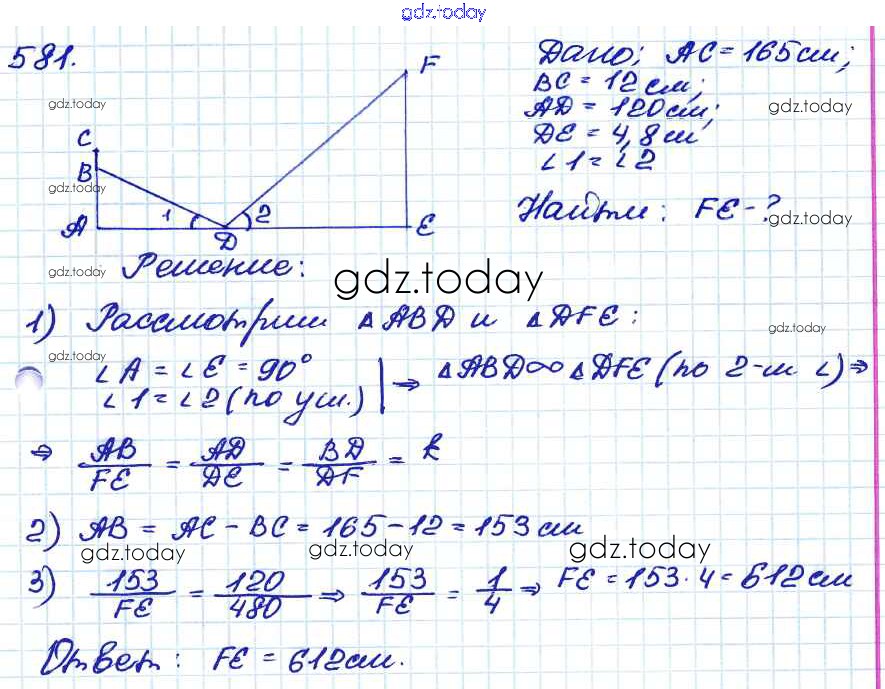 gdz.today
581.
F
Дано: AC = 165 см;
BC = 12 см;
AD = 120 см;
DE = 4,8 см
∠1 = ∠2
Найти: FE - ?
gdz.today
gdz.today
gdz.today
gdz.today
C
B
A
1
2
D
E
gdz.today
Решение:
gdz.today
1) Рассмотрим ΔABD и ΔDFE:
gdz.today
gdz.today
∠A = ∠E = 90°
∠1 = ∠2 (по усл.) | ⇒ ΔABD ∞ ΔDFE (по 2-м ∠) ⇒
⇒ AB/FE = AD/DE = BD/DF = k
2) AB = AC - BC = 165 - 12 = 153 см
gdz.today gdz.today gdz.today
3) 153/FE = 120/480 ⇒ 153/FE = 1/4 ⇒ FE = 153 · 4 = 612 см
Ответ: FE = 612 см.